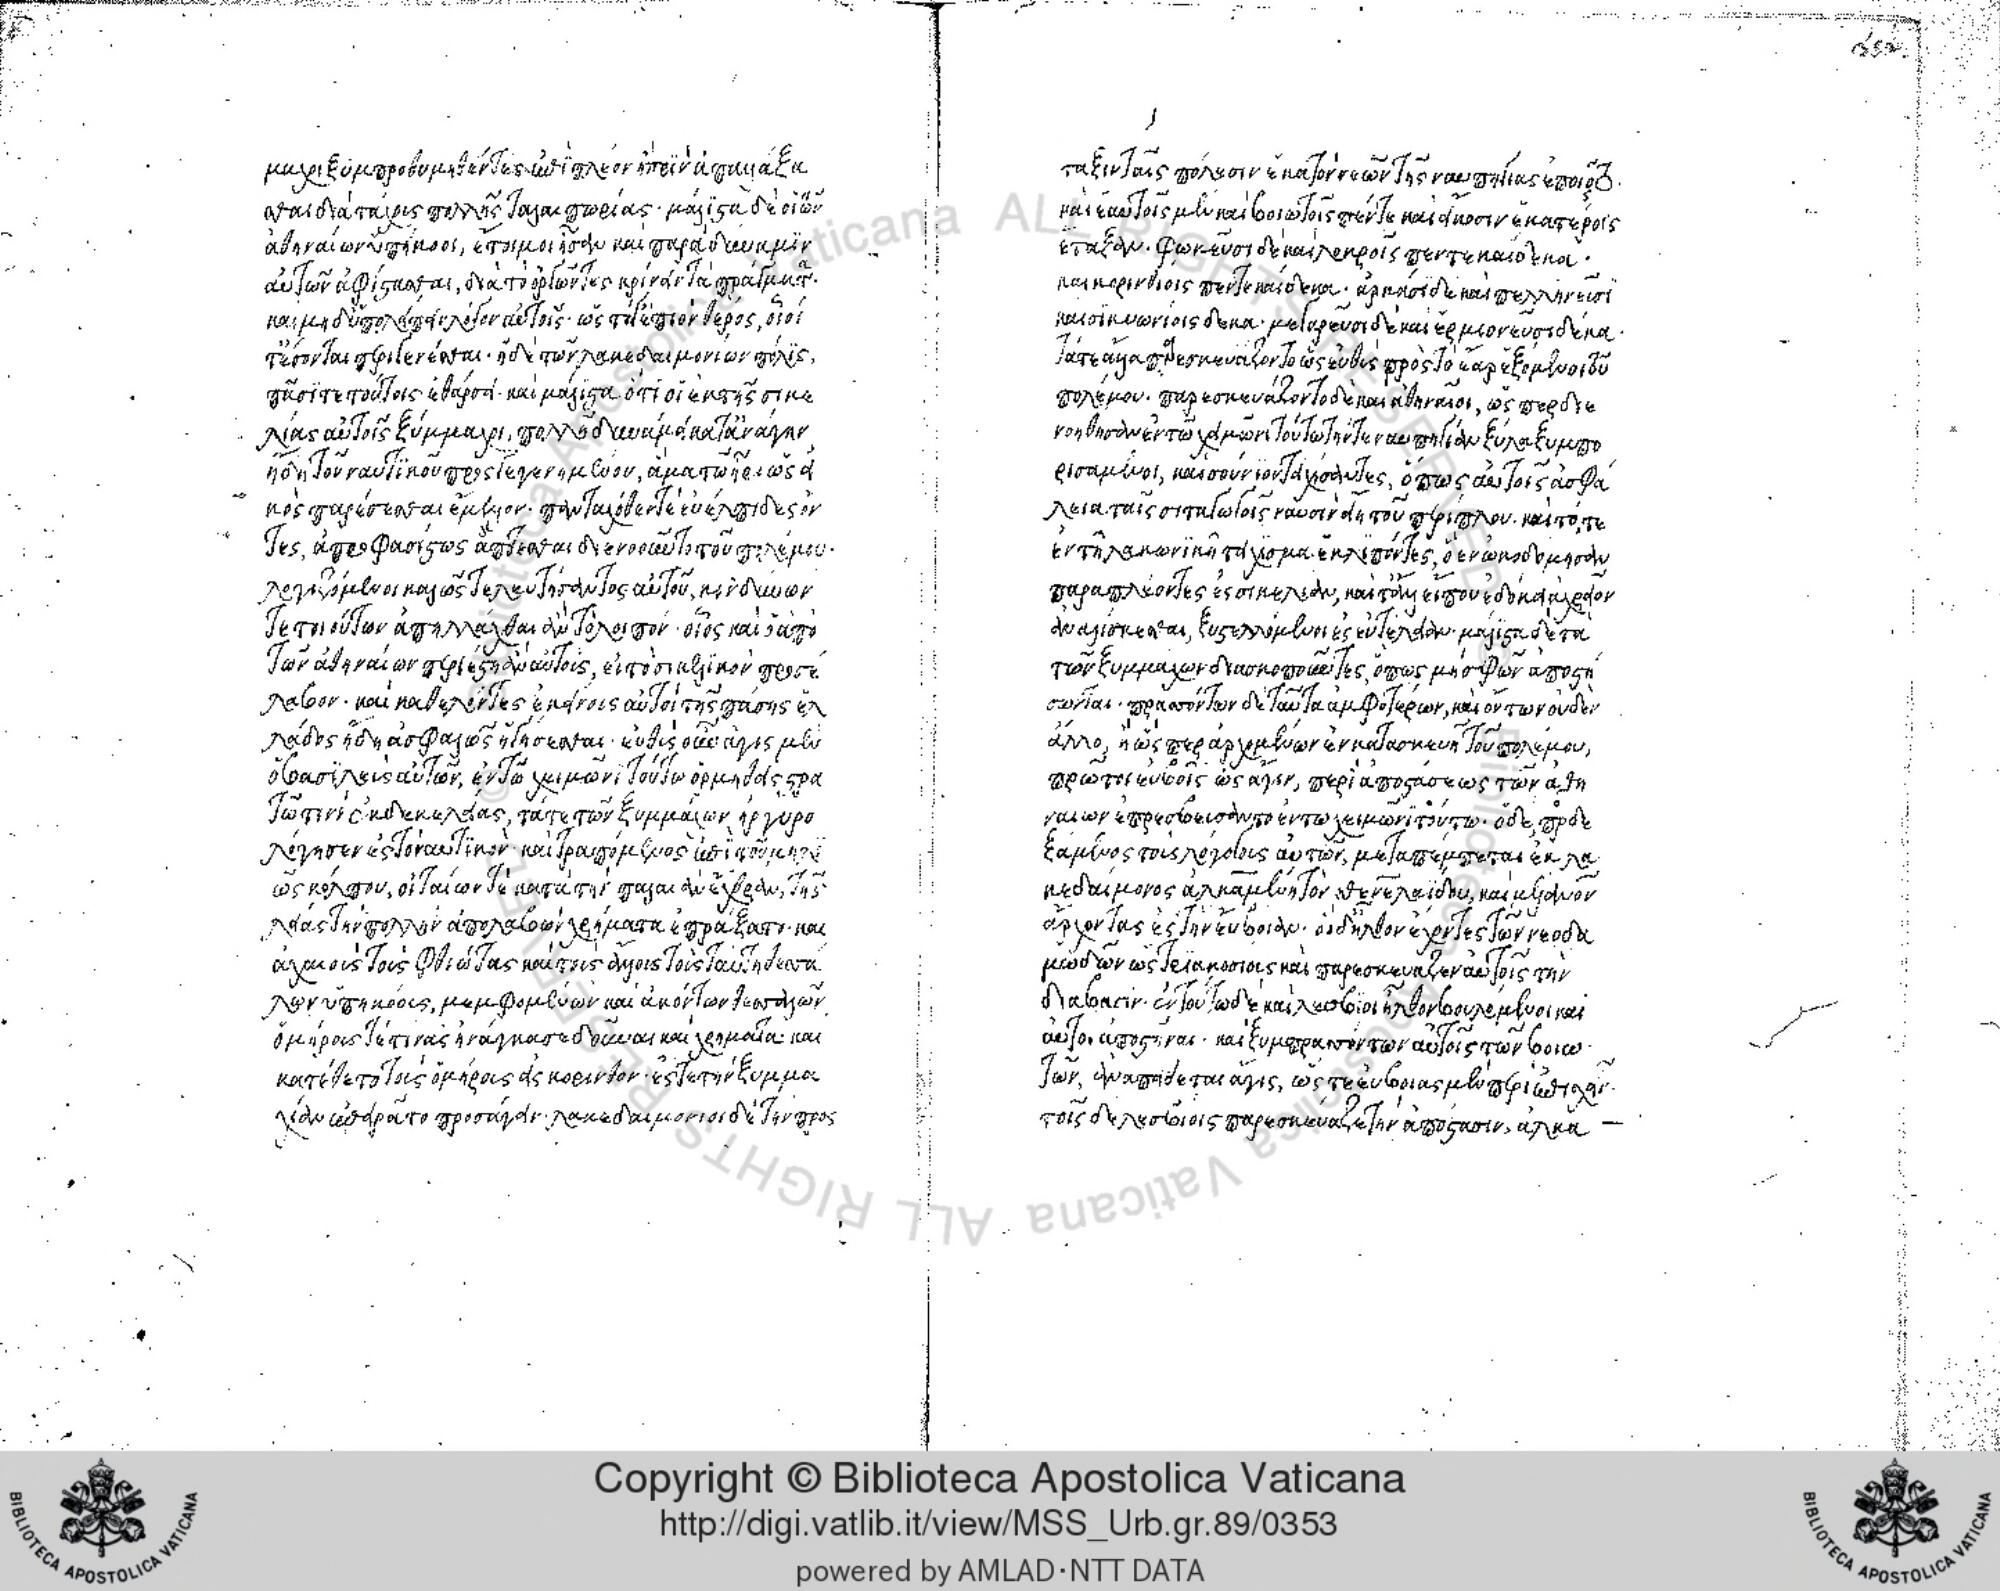 μαχοι ξυμπροθυμηθέντες ἐπὶ πλέον ἢ πρὶν ἀπαλλάξα
σθαι διὰ τάχους πολλῆς ταλαιπωρίας· μάλιστα δὲ οἱ τῶν
ἀθηναίων ὑπήκοοι, ἕτοιμοι ἦσαν καὶ παρὰ δύναμιν
αὐτῶν ἀφίστασθαι, διὰ τὸ ὀργῶντες κρίνειν τὰ πράγματα·
καὶ μηδ' ὑπολείπειν λόγον αὐτοῖς· ὡς τό γ' ἐπιὸν θέρος, οἷοί
τε ἔσονται περιγενέσθαι· ἡ δὲ τῶν λακεδαιμονίων πόλις,
πᾶσί τε τούτοις ἐθάρσει· καὶ μάλιστα ὅτι οἱ ἐκ τῆς σικε
λίας αὐτοῖς ξύμμαχοι, πολλῇ δυνάμει κατ' ἀνάγκην
ἤδη τοῦ ναυτικοῦ προσγεγενημένου, ἅμα τῷ ἦρι ὡς εἰ
κὸς παρέσεσθαι ἔμελλον· πανταχόθεν τε εὐέλπιδες ὄν
τες, ἀπροφασίστως ἅπτεσθαι διενοοῦντο τοῦ πολέμου·
λογιζόμενοι καλῶς τελευτήσαντος αὐτοῦ, κινδύνων
τε τοιούτων ἀπηλλάχθαι ἂν τὸ λοιπόν· οἷος καὶ ὁ ἀπὸ
τῶν ἀθηναίων περιέστη ἂν αὐτοῖς, εἰ τὸ σικελικὸν προσέ
λαβον· καὶ καθελόντες ἐκείνους αὐτοὶ τῆς πάσης ἑλ
λάδος ἤδη ἀσφαλῶς ἡγήσεσθαι· εὐθὺς οὖν ἆγις μὲν
ὁ βασιλεὺς αὐτῶν, ἐν τῷ χειμῶνι τούτῳ ὁρμηθεὶς στρα
τῷ τινὶ ἐκ δεκελείας, τά τε τῶν ξυμμάχων ἠργυρο
λόγησεν ἐς τὸ ναυτικόν· καὶ τραπόμενος ἐπὶ τοῦ μηλι
ῶς κόλπου, οἰταίων τε κατὰ τὴν παλαιὰν ἔχθραν, τῆς
λείας τὴν πολλὴν ἀπολαβὼν χρήματα ἐπράξατο· καὶ
ἀχαιοὺς τοὺς φθιώτας καὶ τοὺς ἄλλους τοὺς ταύτῃ θεσσα
λῶν ὑπηκόους, μεμφομένων καὶ ἀκόντων θεσσαλῶν
ὁμήρους τέ τινας ἠνάγκασε δοῦναι καὶ χρήματα· καὶ
κατέθετο τοὺς ὁμήρους εἰς κόρινθον· ἔς τε τὴν ξυμμα
χίαν ἐπειρᾶτο προσάγειν· λακεδαιμόνιοι δὲ τὴν πρόσ
ταξιν ταῖς πόλεσιν ἑκατὸν νεῶν τῆς ναυπηγίας ἐποιοῦντο·
καὶ ἑαυτοῖς μὲν καὶ βοιωτοῖς πέντε καὶ εἴκοσιν ἑκατέροις
ἔταξαν· φωκεῦσι δὲ καὶ λοκροῖς πεντεκαίδεκα·
καὶ κορινθίοις πεντεκαίδεκα· ἀρκάσι δὲ καὶ πελληνεῦσι
καὶ σικυωνίοις δέκα· μεγαρεῦσι δὲ καὶ ἑρμιονεῦσι δέκα·
τά τε ἄλλα παρεσκευάζοντο ὡς εὐθὺς πρὸς τὸ ἔαρ ἑξόμενοι τοῦ
πολέμου· παρεσκευάζοντο δὲ καὶ ἀθηναῖοι, ὥσπερ διε
νοήθησαν ἐν τῷ χειμῶνι τούτῳ τήν τε ναυπηγίαν ξύλα ξυμπο
ρισάμενοι, καὶ σούνιον τειχίσαντες, ὅπως αὐτοῖς ἀσφά
λεια ταῖς σιταγωγοῖς ναυσὶν εἴη τοῦ περίπλου· καὶ τό, τε
ἐν τῇ λακωνικῇ τείχισμα ἐκλιπόντες, ὃ ἐνῳκοδόμησαν
παραπλέοντες ἐς σικελίαν, καὶ τἄλλα εἴ που ἐδόκει ἀχρεῖον
ἀναλίσκεσθαι, ξυστελλόμενοι ἐς εὐτέλειαν· μάλιστα δὲ τὰ
τῶν ξυμμάχων διασκοποῦντες, ὅπως μὴ σφῶν ἀποστή
σωνται· πρασσόντων δὲ ταῦτα ἀμφοτέρων, καὶ ὄντων οὐδὲν
ἄλλο, ἢ ὥσπερ ἀρχομένων ἐν κατασκευῇ τοῦ πολέμου,
πρῶτοι εὐβοῆς ὡς ἆγιν, περὶ ἀποστάσεως τῶν ἀθη
ναίων ἐπρεσβεύσαντο ἐν τῷ χειμῶνι τούτῳ· ὁ δὲ, προσδε
ξάμενος τοὺς λόγους αὐτῶν, μεταπέμπεται ἐκ λα
κεδαίμονος ἀλκαμένη τὸν σθενελαΐδου, καὶ μέλανθον
ἄρχοντας ἐς τὴν εὔβοιαν· οἱ δ' ἦλθον ἔχοντες τῶν νεοδα
μωδῶν ὡς τριακοσίους καὶ παρεσκεύαζεν αὐτοῖς τὴν
διάβασιν· ἐν τούτῳ δὲ καὶ λέσβιοι ἦλθον βουλόμενοι καὶ
αὐτοὶ ἀποστῆναι· καὶ ξυμπρασσόντων αὐτοῖς τῶν βοιω
τῶν, ἀναπείθεται ἆγις, ὥστε εὐβοίας μὲν πέρι ἐπισχεῖν·
τοῖς δὲ λεσβίοις παρεσκεύαζε τὴν ἀπόστασιν, ἀλκα
Copyright © Biblioteca Apostolica Vaticana
http://digi.vatlib.it/view/MSS_Urb.gr.89/0353
powered by AMLAD·NTT DATA
BIBLIOTECA APOSTOLICA VATICANA
BIBLIOTECA APOSTOLICA VATICANA